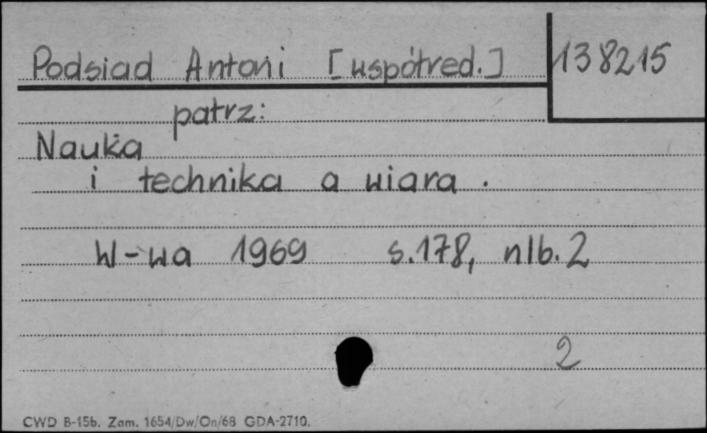 Podsiad Antoni [współred.] 138215
patrz:
Nauka
i technika a wiara.
W-wa 1969 s.178, nlb.2
2
CWD B-15b. Zam. 1654/Dw/On/68 GDA-2710.